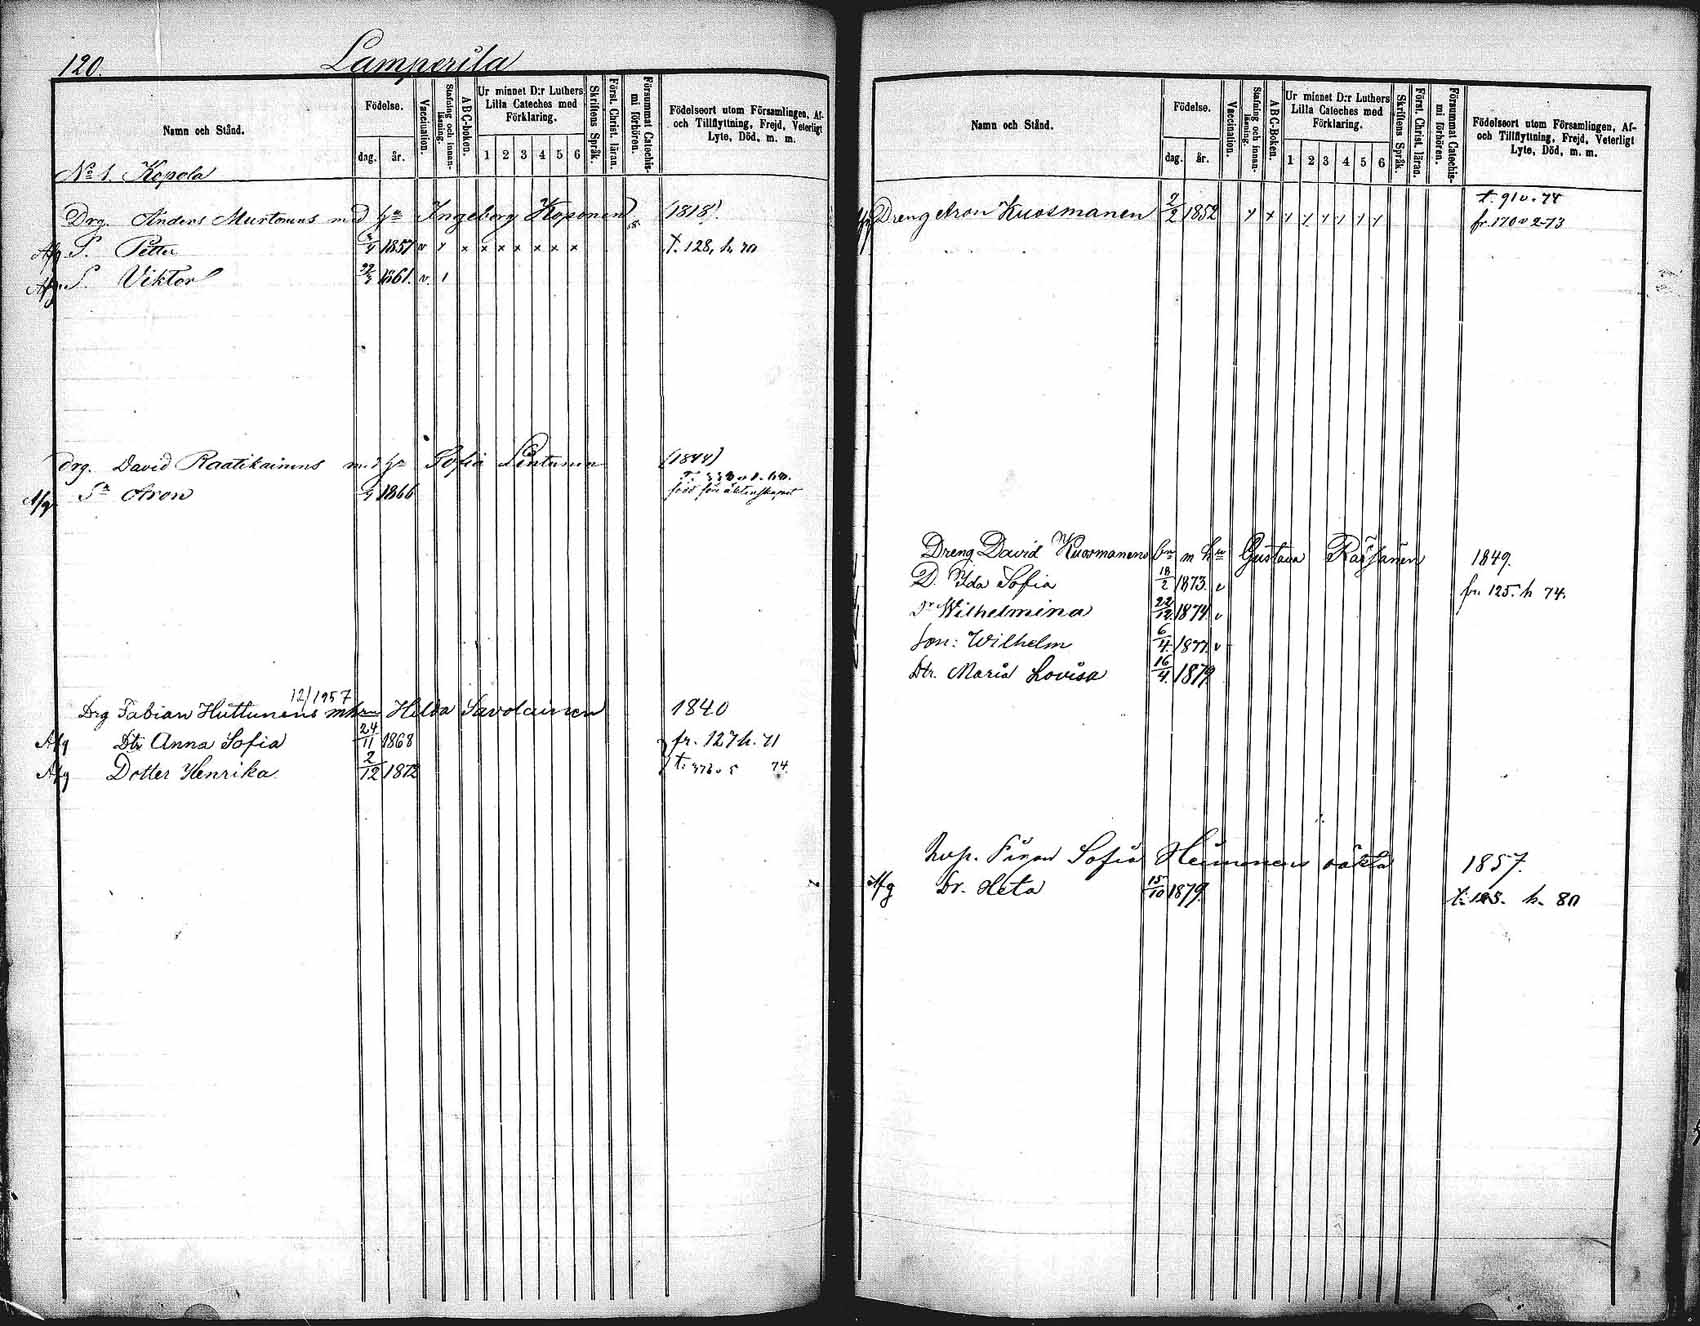 120.
Lamperila
Namn och Stånd.
Födelse.
dag. år.
Vaccination.
Stafning och innanläsning.
ABC-boken.
Ur minnet D:r Luthers Lilla Cateches med Förklaring.
1 2 3 4 5 6
Skriftens Språk.
Först. Christ. läran.
Försummat Catechismi förhören.
Födelseort utom Församlingen, Af- och Tillflyttning, Frejd, Veterligt Lyte, Död, m. m.
No 1. Kopola
Drg. Anders Murtomns m d hu Ingeborg Koponen (1818).
Afg S. Petter 1857 v x x x x x x x x t. 128, h. 70
Afg. S. Viktor 1861. v. 1
Drg. David Raatikainens m. d. hu Sofia (1844)
Afg Sn Aron 1866 född före äktenskapet
12/1957
Drg Fabian Huttunens m hu Hilda Savolainen 1840
Afg Dtr Anna Sofia 24/11 1868 fr. 127 h. 71
Afg Dotter Henrika 2/12 1872 74.
Namn och Stånd.
Födelse.
dag. år.
Vaccination.
Stafning och innanläsning.
ABC-Boken.
Ur minnet D:r Luthers Lilla Cateches med Förklaring.
1 2 3 4 5 6
Skriftens Språk.
Först Christ. läran.
Försummat Catechismi förhören.
Födelseort utom Församlingen, Af- och Tillflyttning, Frejd, Veterligt Lyte, Död, m. m.
t. 91 v. 74
Dreng Aron Kuosmanen 2/2 1852 x x x x x x x x fr. 170 v 2-73
Dreng David Kuosmanens m hu Gustava Räisänen 1849.
D. Ida Sofia 18/2 1873. v fr. 125. h 74.
Dr Wilhelmina 22/12 1874. v
Son: Wilhelm 6/4 1877. v
Dtr. Maria Lovisa 16/4 1879
Sofia oäkta 1857.
Afg Dr. Heta 15/10 1879. h. 80